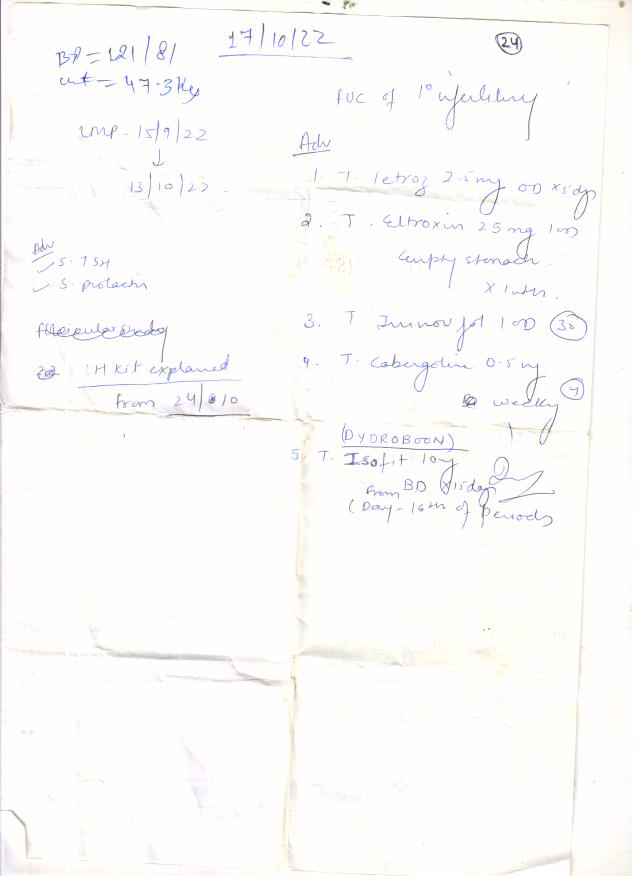 17/10/22
24
BP = 121/81
wt = 47.3 Kg
LMP - 15/9/22
↓
13/10/22.
Adv
✓ S. TSH
✓ S. prolactin
LH Kit explained
from 24/10
FUC of 1° infertility
Adv
1. T. Letroz 2.5mg OD x 5 days
2. T. Eltroxin 25 mg 1 OD
empty stomach.
x 1 mth.
3. T 1 OD 30
4. T. Cabergoline 0.5 mg
weekly 4
(DYDROBOON)
5. T. Isofit 10mg
BD x 15 days
from
(Day - 16th of periods